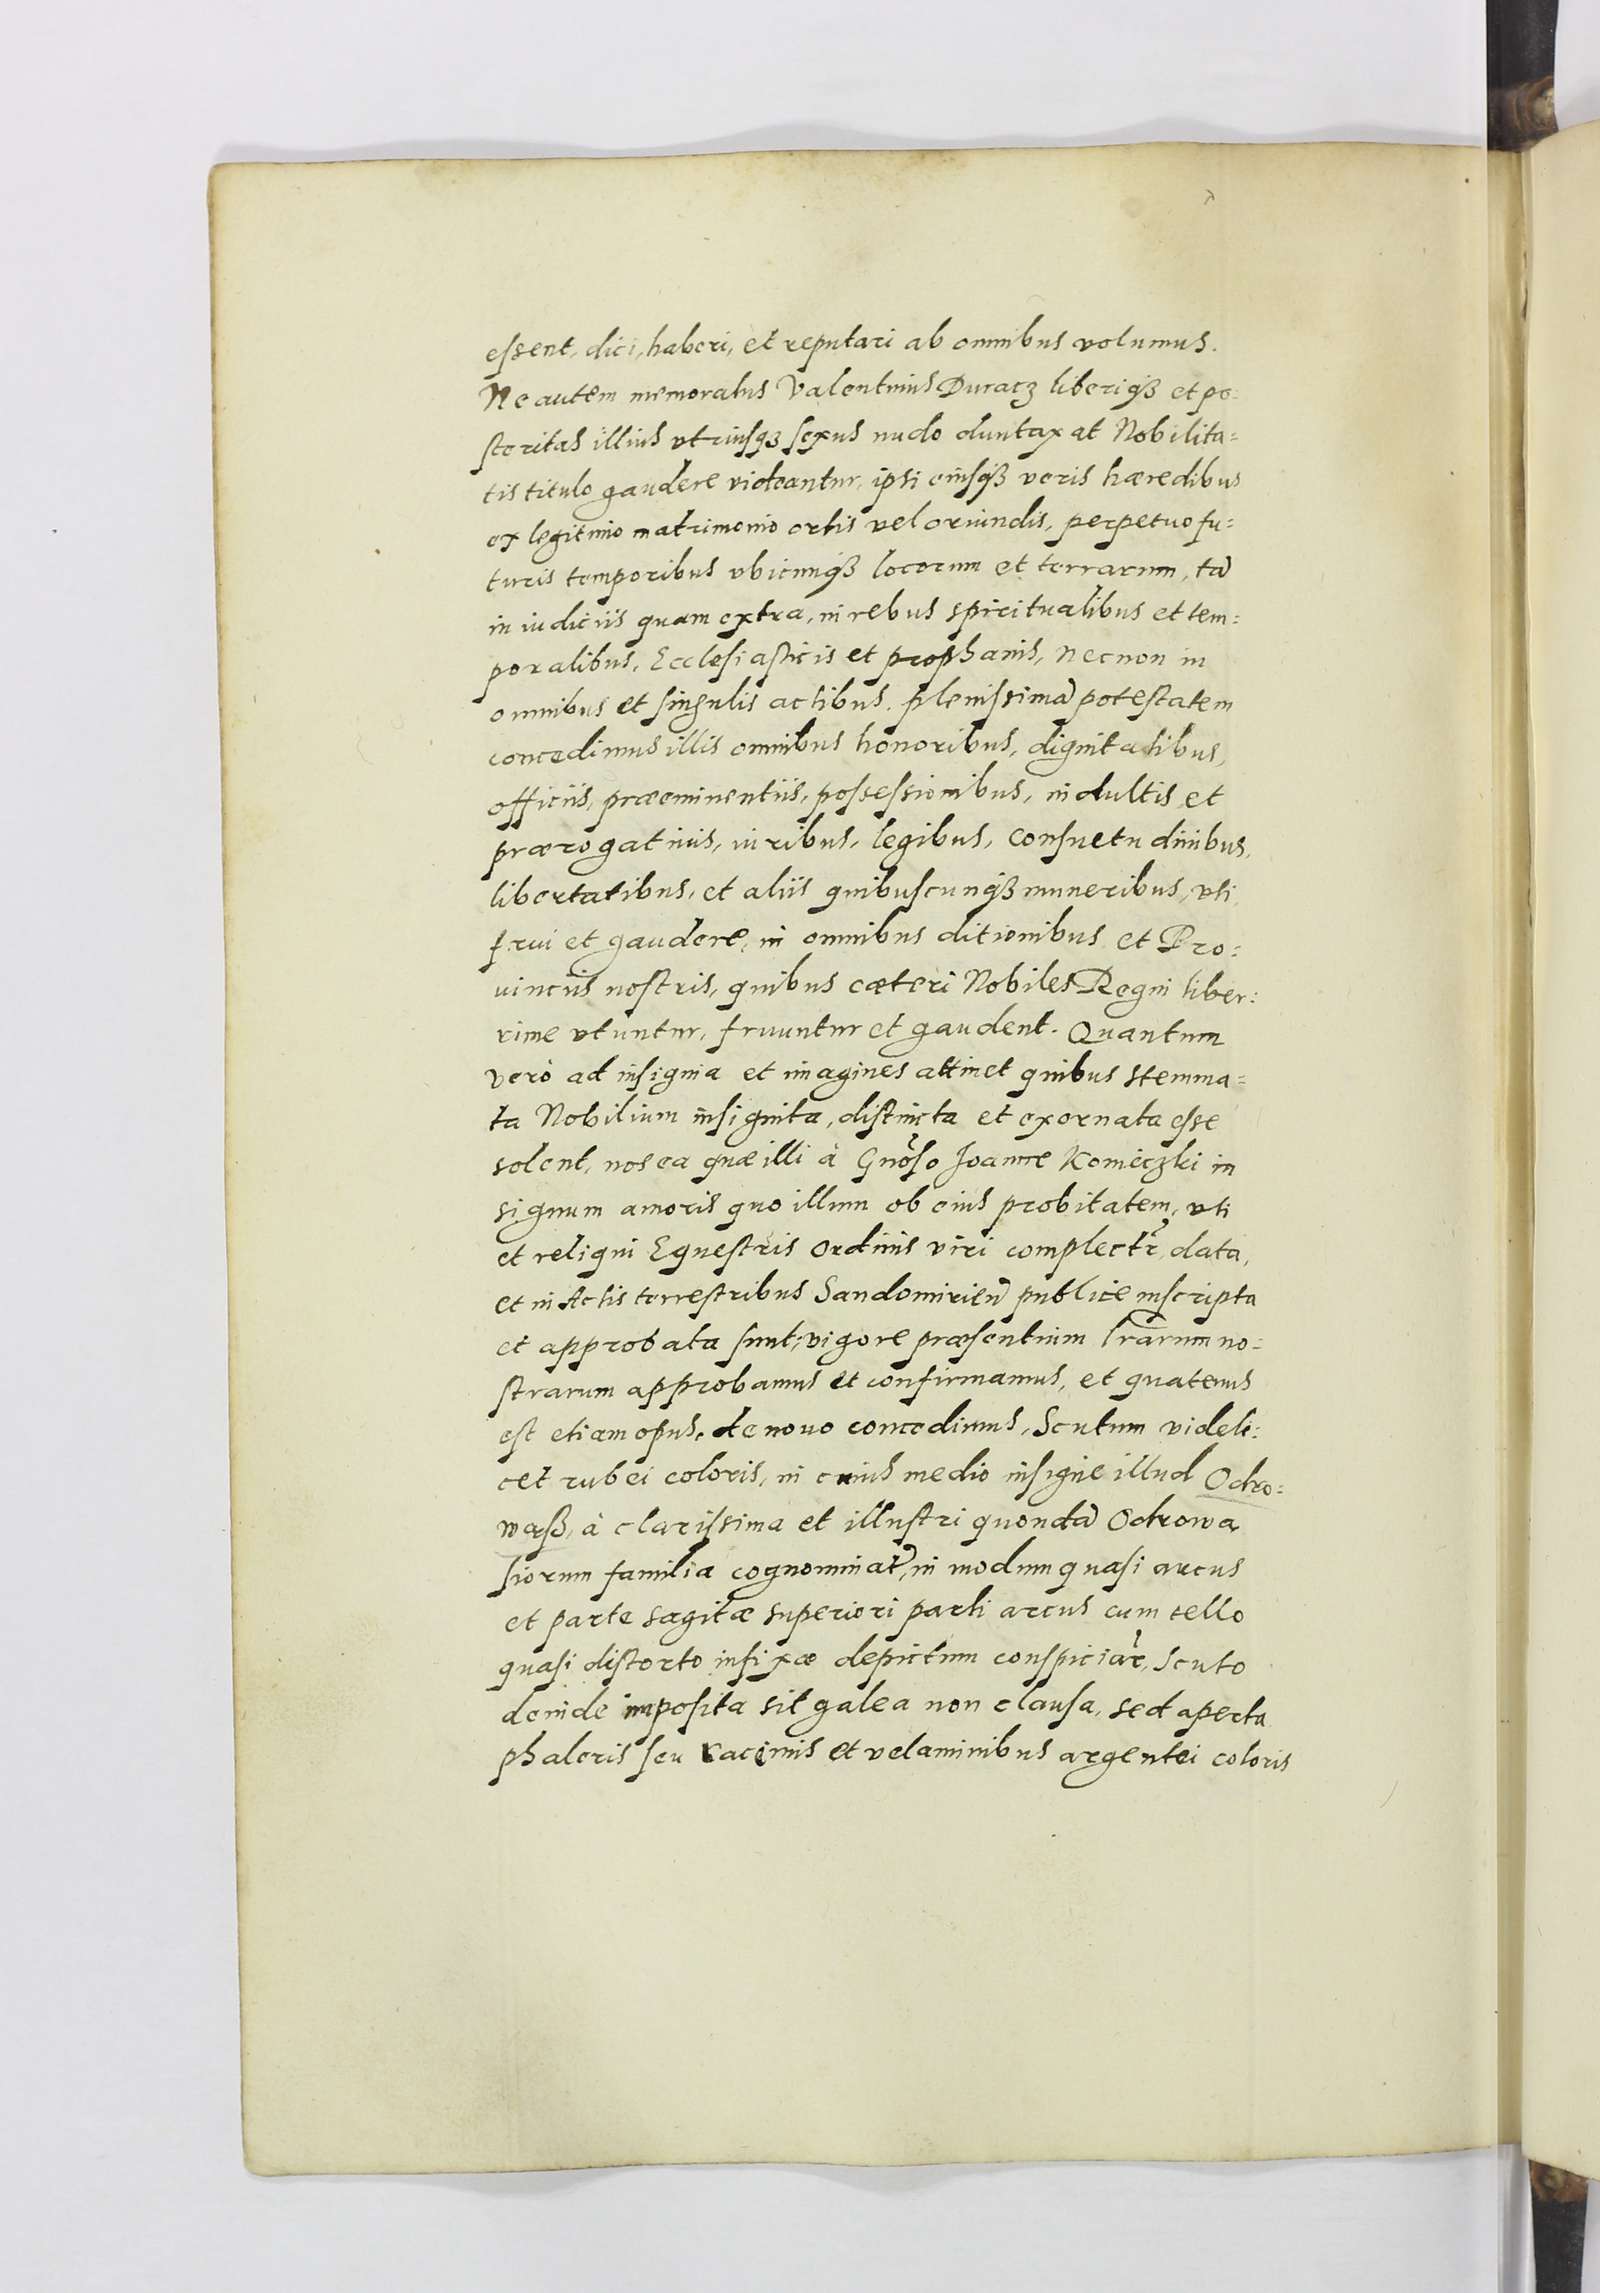 essent, dici, haberi, et reputari ab omnibus volumus.
Ne autem memoratus Valentinus Duracz liberiq3 et po-
steritas illius vtriusq3 sexus nudo duntaxat Nobilita=
tis titulo gaudere videantur, ipsi eiusq3 veris hæredibus
ex legitimo matrimonio ortis vel oriundis, perpetuo fu=
turis temporibus vbicunq3 locorum et terrarum, tã
in iudiciis quam extra, in rebus spiritualibus et tem=
poralibus, Ecclesiasticis et prophanis, necnon in
omnibus et singulis actibus, plenissimã potestatem
concedimus illis omnibus honoribus, dignitatibus,
officiis, præeminentiis, possessionibus, indultis et
prærogatiuis, iuribus, legibus, consuetudinibus,
libertatibus, et aliis quibuscunq3 muneribus, vti
frui et gaudere, in omnibus ditionibus et Pro=
uinciis nostris, quibus cæteri Nobiles Regni liber=
rime vtuntur, fruuntur et gaudent. Quantum
verò ad insignia et imagines attinet quibus stemma=
ta Nobilium insignita, distincta et exornata esse
solent, nos ea quæ illi à Gnõso Joanne Komeczki in
signum amoris quo illum ob eius probitatem, vti
et reliqui Equestris ordinis viri complectr̃, data,
et in Actis terrestribus Sandomirieñ publice inscripta
et approbata sunt; vigore præsentium lr̃arum no=
strarum approbamus et confirmamus, et quatenus
est etiam opus, de nouo concedimus, Scutum videli=
cet rubei coloris, in cuius medio insigne illud Odro=
wąß, à clarissima et illustri quondã Odrowa
siorum familia cognominatr̃, in modum quasi arcus
et parte sagitæ superiori parti arcus cum tello
quasi distorto infixæ depictum conspiciatr̃, Scuto
deinde imposita sit galea non clausa, sed aperta
phaleris seu laciniis et velaminibus argentei coloris